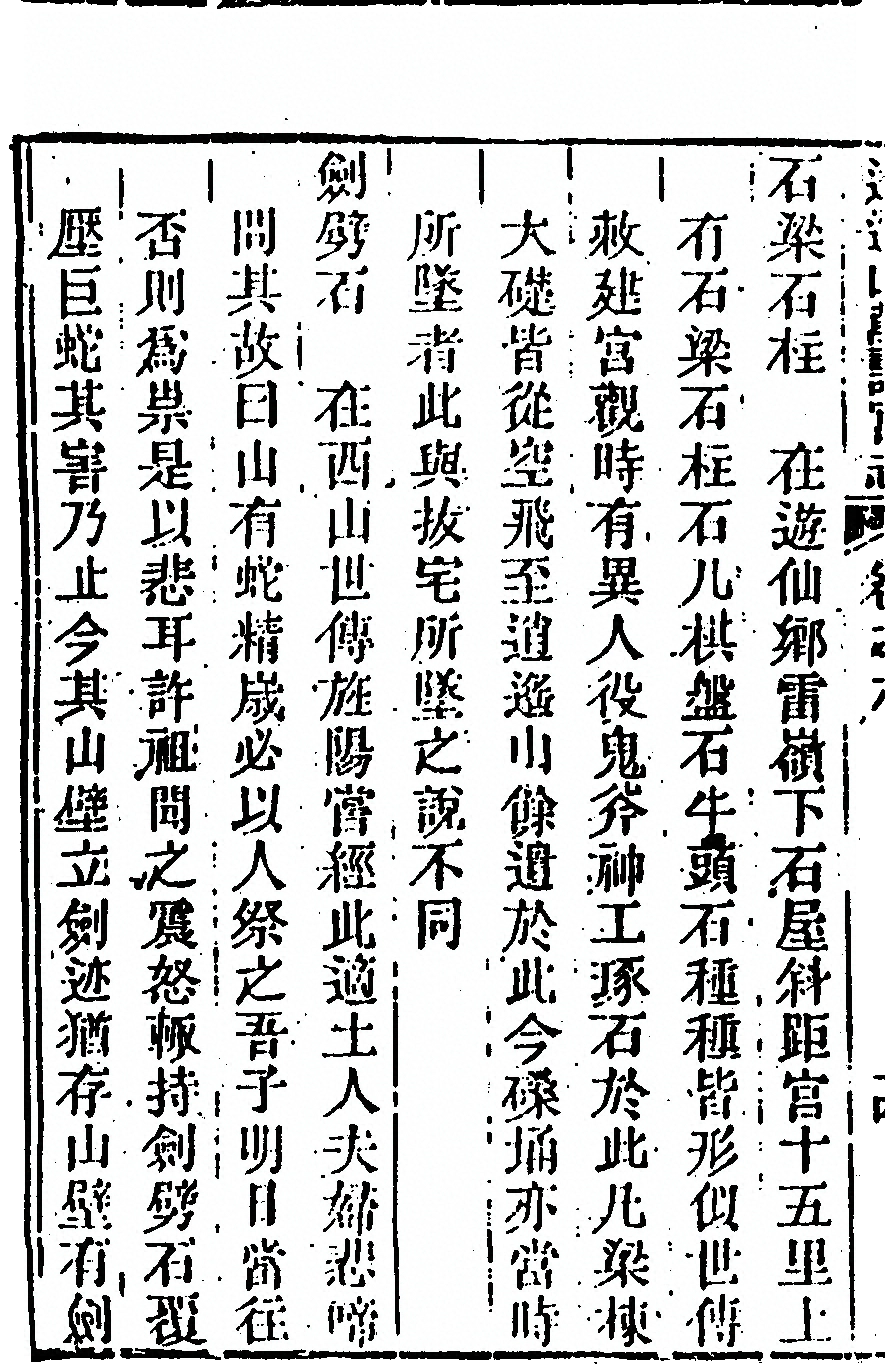 石梁石柱　在遊仙鄉雷嶺下石屋斜距宮十五里上
有石梁石柱石几棋盤石牛頭石種種皆形似世傳
敕建宮觀時有異人役鬼斧神工琢石於此凡梁棟
大礎皆從空飛至逍遙山餘遺於此今磉埇亦當時
所墜者此與拔宅所墜之說不同
劍劈石　在西山世傳旌陽嘗經此適土人夫婦悲啼
問其故曰山有蛇精歲必以人祭之吾子明日當往
否則為祟是以悲耳許祖聞之震怒輒持劍劈石覆
壓巨蛇其害乃止今其山壁立劍迹猶存山壁有劍